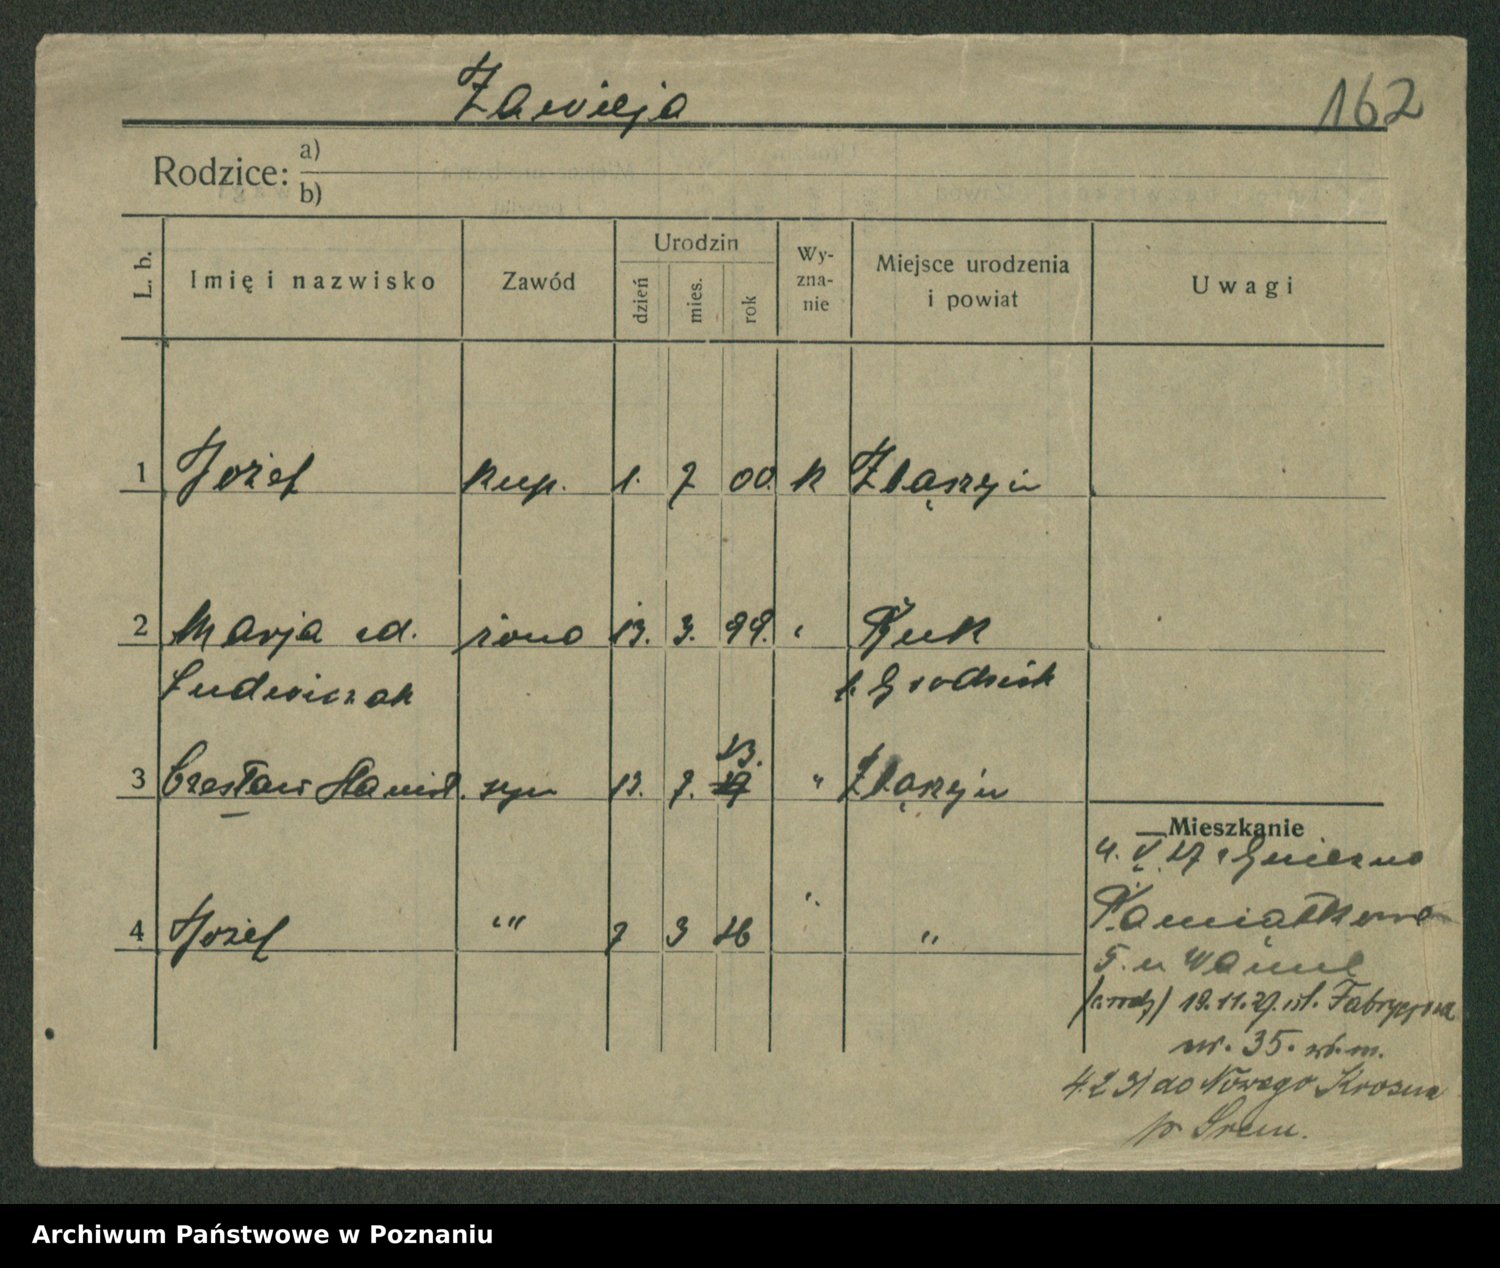 Zawieja
162
Rodzice: a)
b)
L. b. Imię i nazwisko Zawód Urodzin dzień mies. rok Wy-zna-nie Miejsce urodzenia i powiat Uwagi
1 Józef kup. 1. 7 00. k Zbąszyń
2 Marja żona 13. 3. 99. " Buk
Ludwiczak Grodzisk
3 Czesław syn 13. 7. 23. " Zbąszyń
4 Józef "" 7 3 26 " "
Mieszkanie
4. V. 27 z Gniezna
Pamiątkowa
5. u
19.11.27. ul. Fabryczna
nr. 35.
4.2 31 do Nowego Krosna
p. Śrem.
Archiwum Państwowe w Poznaniu